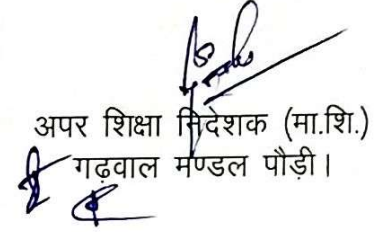 अपर शिक्षा निदेशक (मा.शि.)
गढ़वाल मण्डल पौड़ी।